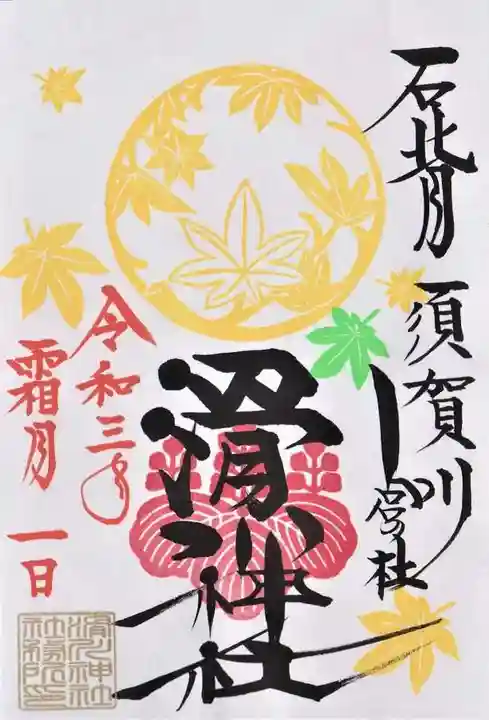 石背 須賀川
宮社
滑川神社
令和三年
霜月 一日
滑川神社
社務所之印